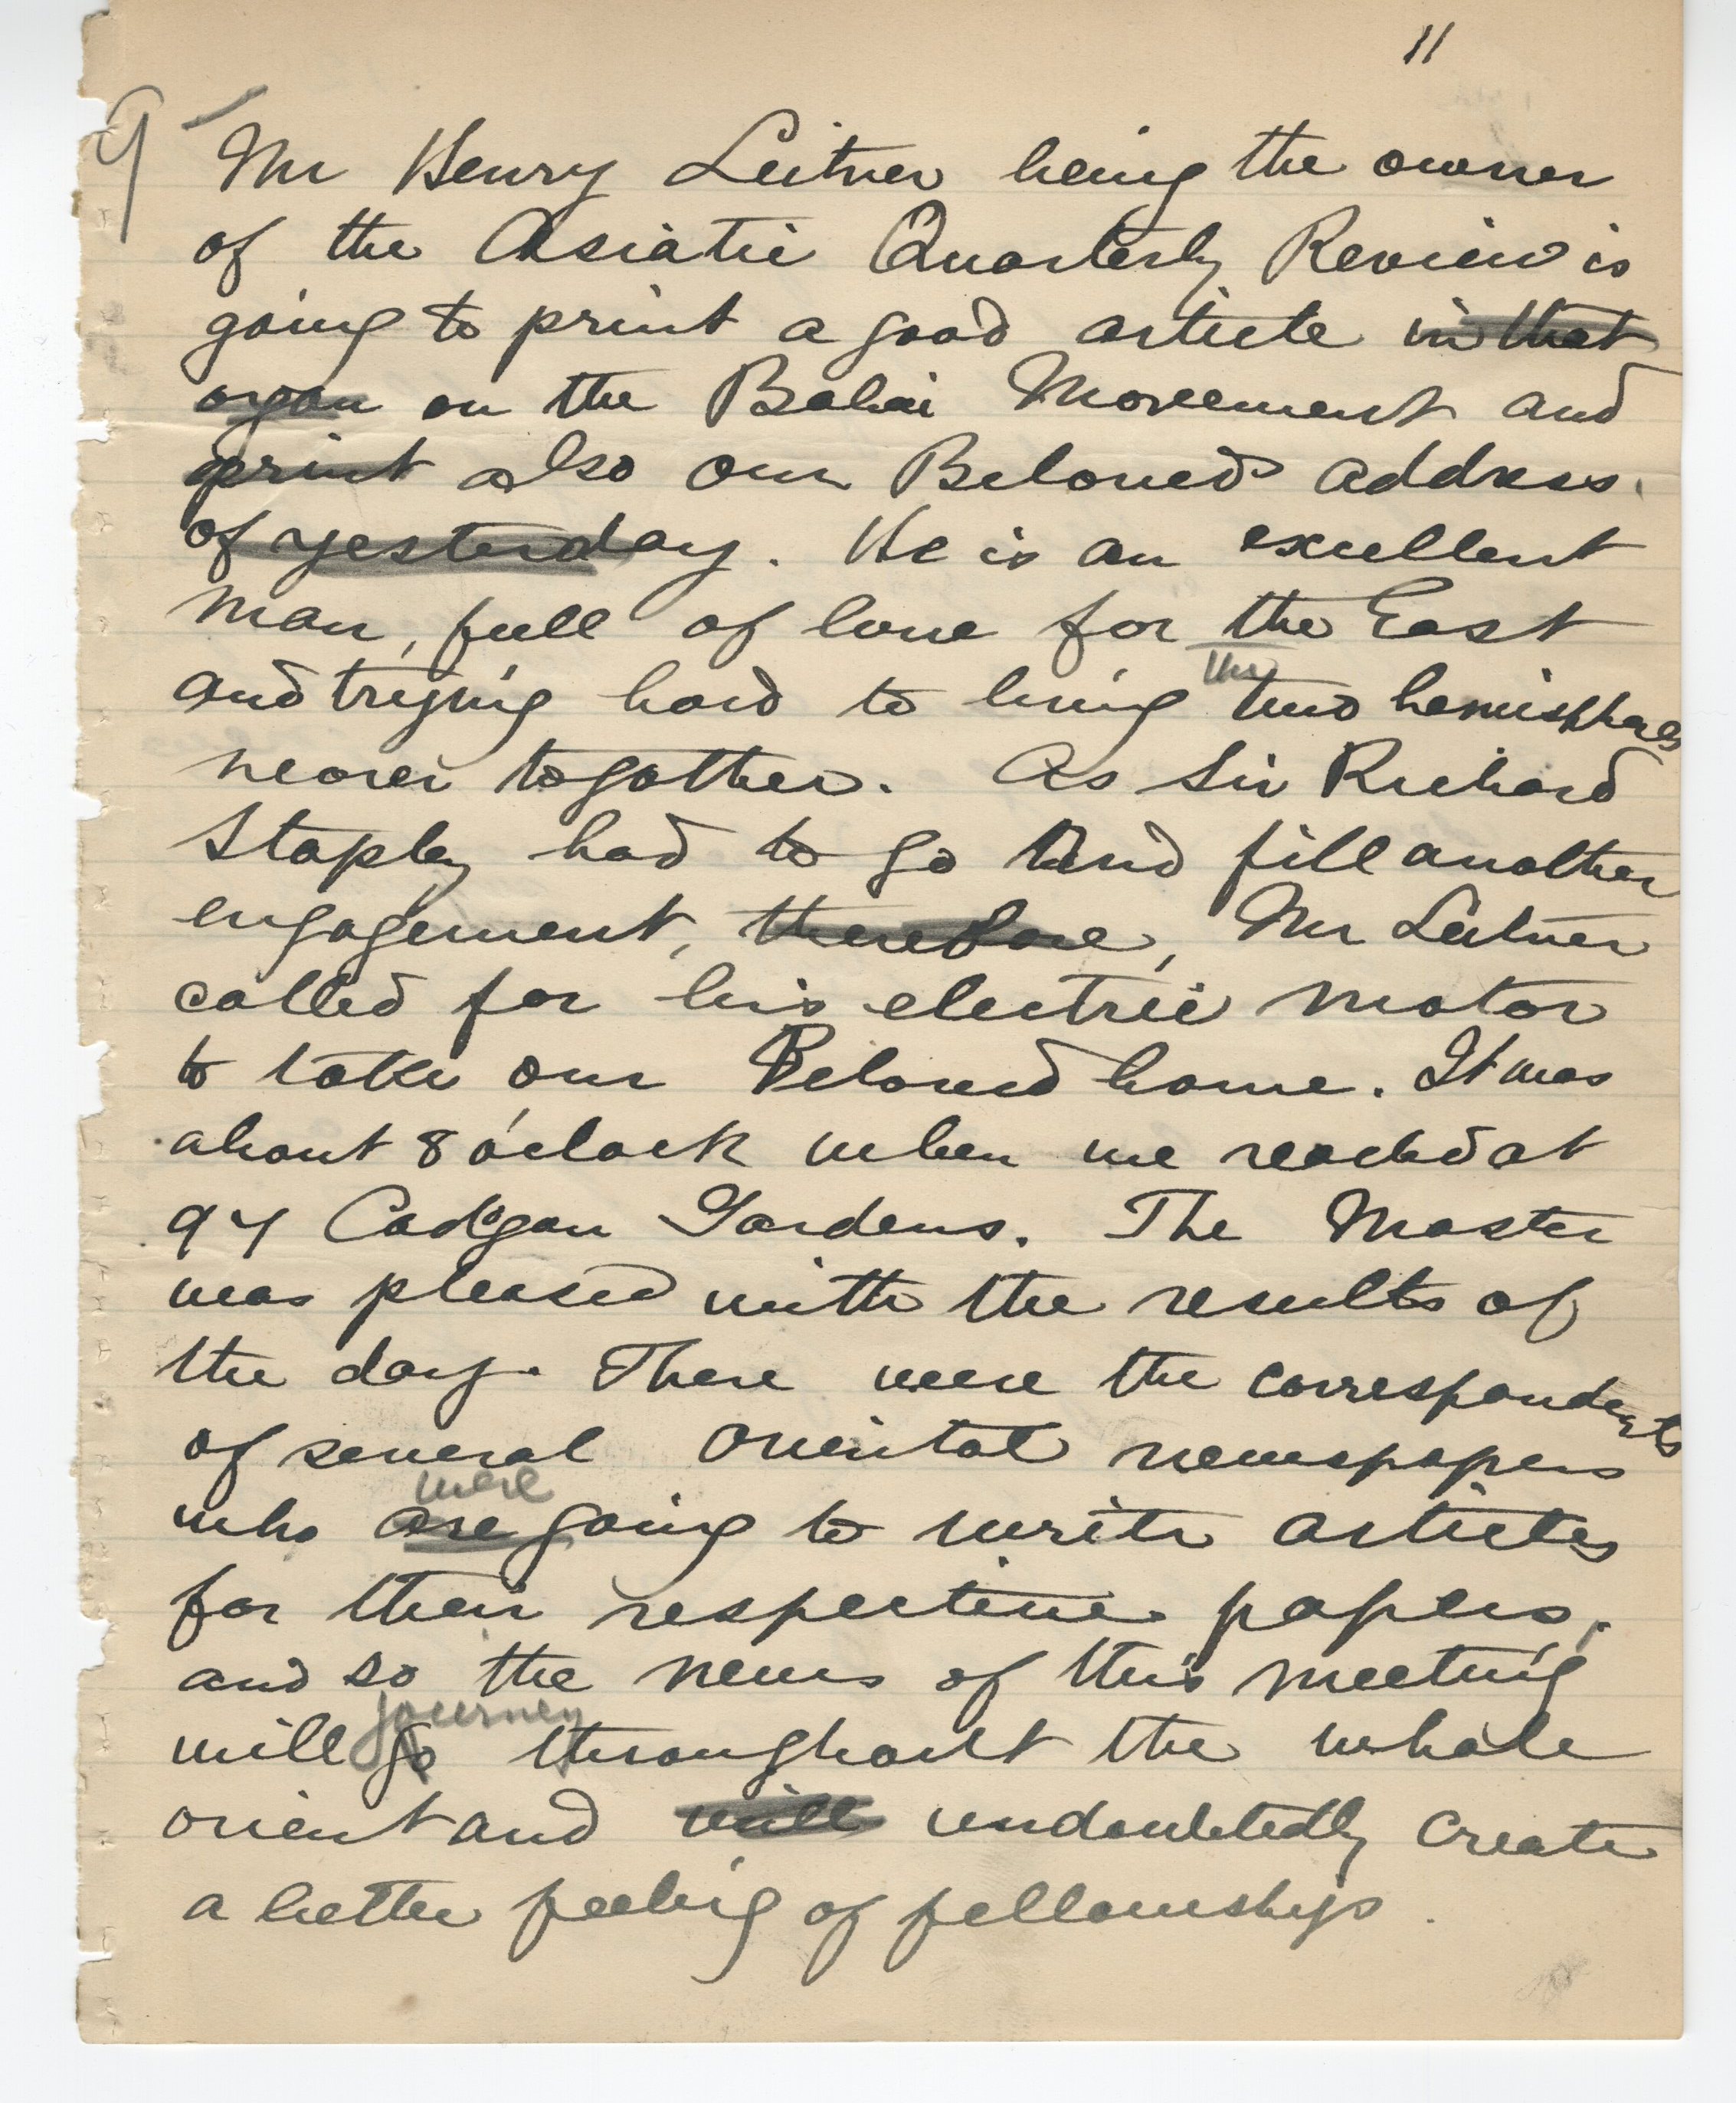 11
9 Mr Henry Leitner being the owner
of the Asiatic Quarterly Review is
going to print a good article in that
organ on the Bahai Movement and
print also our Beloved address.
of yesterday. He is an excellent
man, full of love for the East
the
and trying hard to bring two hemispheres
nearer togather. As Sir Richard
Stapley had to go And fill another
engagement, therefore, Mr Leitner
called for his electric motor
to take our Beloved home. It was
about 8 o'clock when we reached at
97 Cadogan Gardens. The Master
was pleased with the results of
the day. There were the correspondents
of several oriental newspapers
were
who are going to write articles
for their respective papers,
and so the news of this meeting
journey
will go throughout the whole
orient and will undoubtedly create
a better feeling of fellowship.